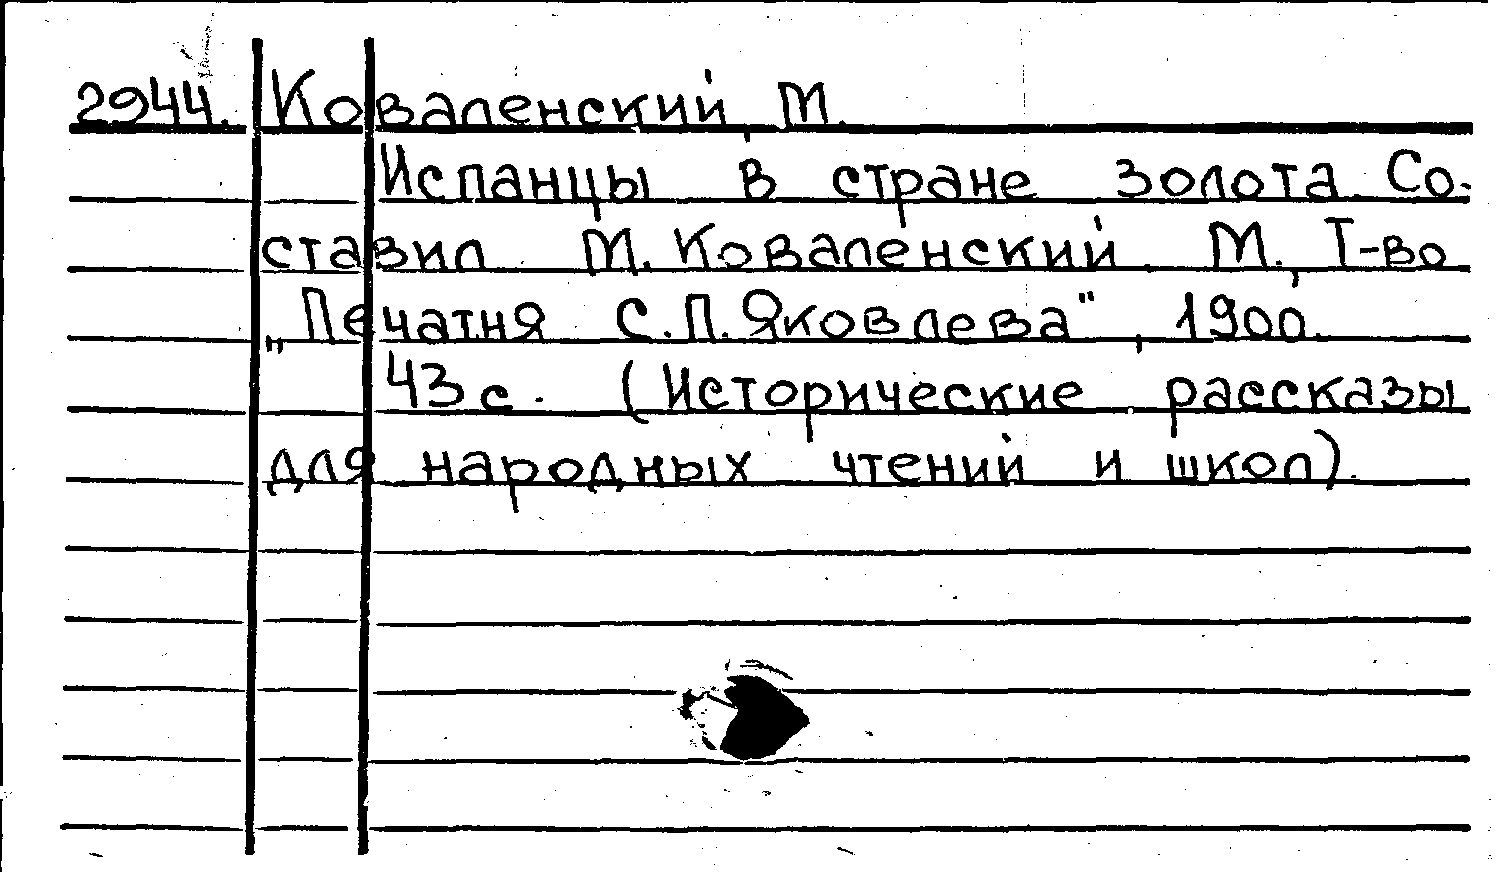 2944. Коваленский, М.
Испанцы в стране золота. Со-
ставил М. Коваленский. М., Т-во
„Печатня С.П. Яковлева", 1900.
43 с. (Исторические рассказы
для народных чтений и школ).